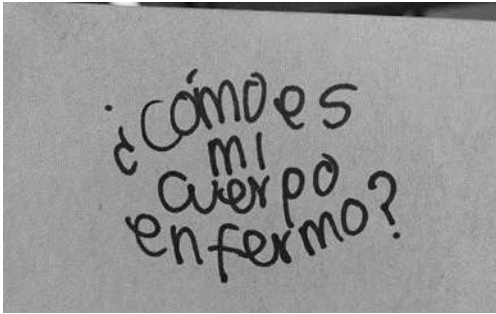 ¿cómo es
mi
cuerpo
enfermo?